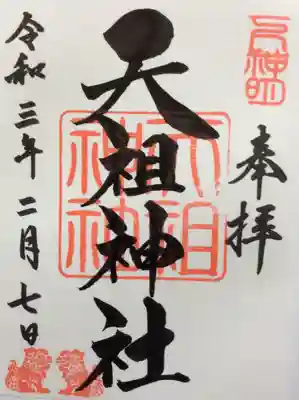 奉拝
天祖神社
令和三年二月七日
天祖神社